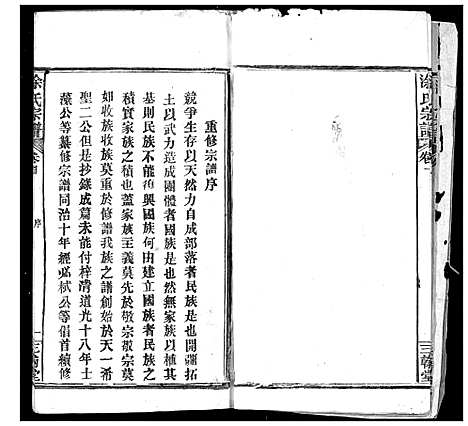 涂氏宗譜
卷首
三翰堂
重修宗譜序
競爭生存以天然力自成部落者民族是也開疆拓
土以武力造成團體者國族是也然無家族以植其
基則民族不能復興國族何由建立國族者民族之
積實家族之積也蓋家族主義莫先於敬宗敬宗莫
如收族收族莫重於修譜我族之譜創始於天一希
聖二公但是抄錄成篇未能付梓清道光十八年士
藻公等纂修宗譜同治十年經 栻公等倡首續修
涂氏宗譜
卷首
序
一
三翰堂